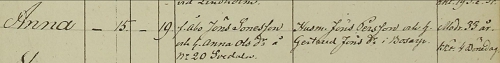 Anna – 15. – 19. f. Åbo Jöns Jonesson
och f. Anna Ols Dr å
No 20 Svedala.
Husm. Jöns Persson och h.
Gertrud Jöns Dr. i Bosarp.
Modr. 35 år.